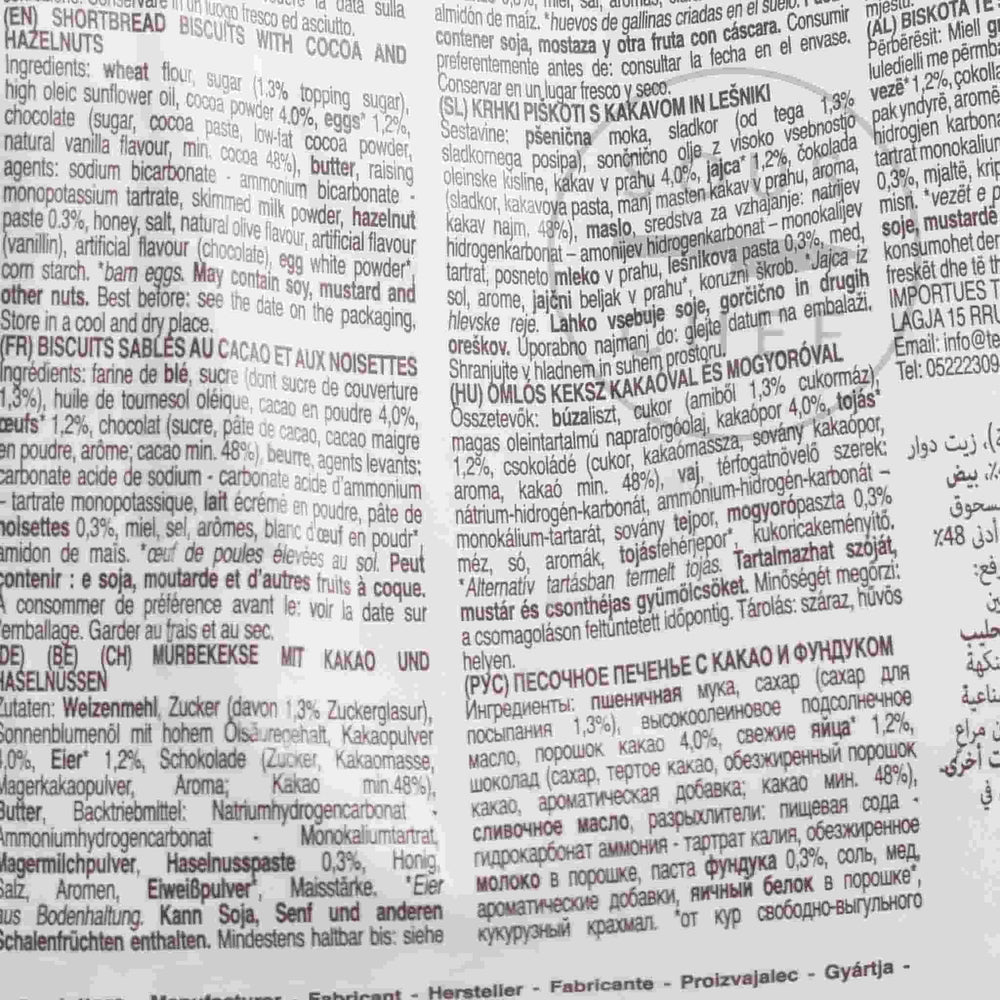 Conservare in un luogo fresco ed asciutto.
(EN) SHORTBREAD BISCUITS WITH COCOA AND
HAZELNUTS
Ingredients: wheat flour, sugar (1.3% topping sugar),
high oleic sunflower oil, cocoa powder 4.0%, eggs* 1,2%,
chocolate (sugar, cocoa paste, low-fat cocoa powder,
natural vanilla flavour, min. cocoa 48%), butter, raising
agents: sodium bicarbonate - ammonium bicarbonate -
monopotassium tartrate, skimmed milk powder, hazelnut
paste 0.3%, honey, salt, natural olive flavour, artificial flavour
(vanillin), artificial flavour (chocolate), egg white powder*,
corn starch. *barn eggs. May contain soy, mustard and
other nuts. Best before: see the date on the packaging.
Store in a cool and dry place.
(FR) BISCUITS SABLÉS AU CACAO ET AUX NOISETTES
Ingrédients: farine de blé, sucre (dont sucre de couverture
1,3%), huile de tournesol oléique, cacao en poudre 4,0%,
œufs* 1,2%, chocolat (sucre, pâte de cacao, cacao maigre
en poudre, arôme; cacao min. 48%), beurre, agents levants:
carbonate acide de sodium - carbonate acide d'ammonium
– tartrate monopotassique, lait écrémé en poudre, pâte de
noisettes 0,3%, miel, sel, arômes, blanc d'œuf en poudr*,
amidon de maïs. *œuf de poules élevées au sol. Peut
contenir : e soja, moutarde et d'autres fruits à coque.
À consommer de préférence avant le: voir la date sur
l'emballage. Garder au frais et au sec.
(DE) (BE) (CH) MÜRBEKEKSE MIT KAKAO UND
HASELNÜSSEN
Zutaten: Weizenmehl, Zucker (davon 1,3% Zuckerglasur),
Sonnenblumenöl mit hohem Ölsäuregehalt, Kakaopulver
4,0%, Eier* 1,2%, Schokolade (Zucker, Kakaomasse,
Magerkakaopulver, Aroma; Kakao min.48%),
Butter, Backtriebmittel: Natriumhydrogencarbonat -
Ammoniumhydrogencarbonat - Monokaliumtartrat,
Magermilchpulver, Haselnusspaste 0,3%, Honig,
Salz, Aromen, Eiweißpulver*, Maisstärke. *Eier
aus Bodenhaltung. Kann Soja, Senf und anderen
Schalenfrüchten enthalten. Mindestens haltbar bis: siehe
almidón de maíz. *huevos de gallinas criadas en el suelo.
contener soja, mostaza y otra fruta con cáscara. Consumir
preferentemente antes de: consultar la fecha en el envase.
Conservar en un lugar fresco y seco.
(SL) KRHKI PIŠKOTI S KAKAVOM IN LEŠNIKI
Sestavine: pšenična moka, sladkor (od tega 1,3%
sladkornega posipa), sončnično olje z visoko vsebnostjo
oleinske kisline, kakav v prahu 4,0%, jajca* 1,2%, čokolada
(sladkor, kakavova pasta, manj masten kakav v prahu, aroma,
kakav najm. 48%), maslo, sredstva za vzhajanje: natrijev
hidrogenkarbonat – amonijev hidrogenkarbonat – monokalijev
tartrat, posneto mleko v prahu, lešnikova pasta 0,3%, med,
sol, arome, jajčni beljak v prahu*, koruzni škrob. *Jajca iz
hlevske reje. Lahko vsebuje soje, gorčično in drugih
oreškov. Uporabno najmanj do: glejte datum na embalaži.
Shranjujte v hladnem in suhem prostoru.
(HU) OMLÓS KEKSZ KAKAÓVAL ÉS MOGYORÓVAL
Összetevők: búzaliszt, cukor (amiből 1,3% cukormáz),
magas oleintartalmú napraforgóolaj, kakaópor 4,0%, tojás*
1,2%, csokoládé (cukor, kakaómassza, sovány kakaópor,
aroma, kakaó min. 48%), vaj, térfogatnövelő szerek:
nátrium-hidrogén-karbonát, ammónium-hidrogén-karbonát –
monokálium-tartarát, sovány tejpor, mogyorópaszta 0,3%
méz, só, aromák, tojásfehérjepor*, kukoricakeményítő.
*Alternatív tartásban termelt tojás. Tartalmazhat szóját,
mustár és csonthéjas gyümölcsöket. Minőségét megőrzi:
a csomagoláson feltüntetett időpontig. Tárolás: száraz, hűvös
helyen.
(РУС) ПЕСОЧНОЕ ПЕЧЕНЬЕ С КАКАО И ФУНДУКОМ
Ингредиенты: пшеничная мука, сахар (сахар для
посыпания 1,3%), высокоолеиновое подсолнечное
масло, порошок какао 4,0%, свежие яйца* 1,2%,
шоколад (сахар, тертое какао, обезжиренный порошок
какао, ароматическая добавка; какао мин. 48%),
сливочное масло, разрыхлители: пищевая сода -
гидрокарбонат аммония - тартрат калия, обезжиренное
молоко в порошке, паста фундука 0,3%, соль, мед,
ароматические добавки, яичный белок в порошке*,
кукурузный крахмал. *от кур свободно-выгульного
(AL) BISKOTA TE
Përbërësit: Miell
luledielli me përmb
vezë* 1,2%, çokolla
pak yndyrë, aromë
hidrogjen karbona
tartrat monokalium
0,3%, mjaltë, krip
misri. *vezët e p
soje, mustardë
konsumohet der
freskët dhe të th
IMPORTUES T
LAGJA 15 RRU
Email: info@te
Tel: 05222309
زيت دوار
بيض
أدنى 48٪
حليب
أخرى.
في
Manufacturer - Fabricant - Hersteller - Fabricante - Proizvajalec - Gyártja -